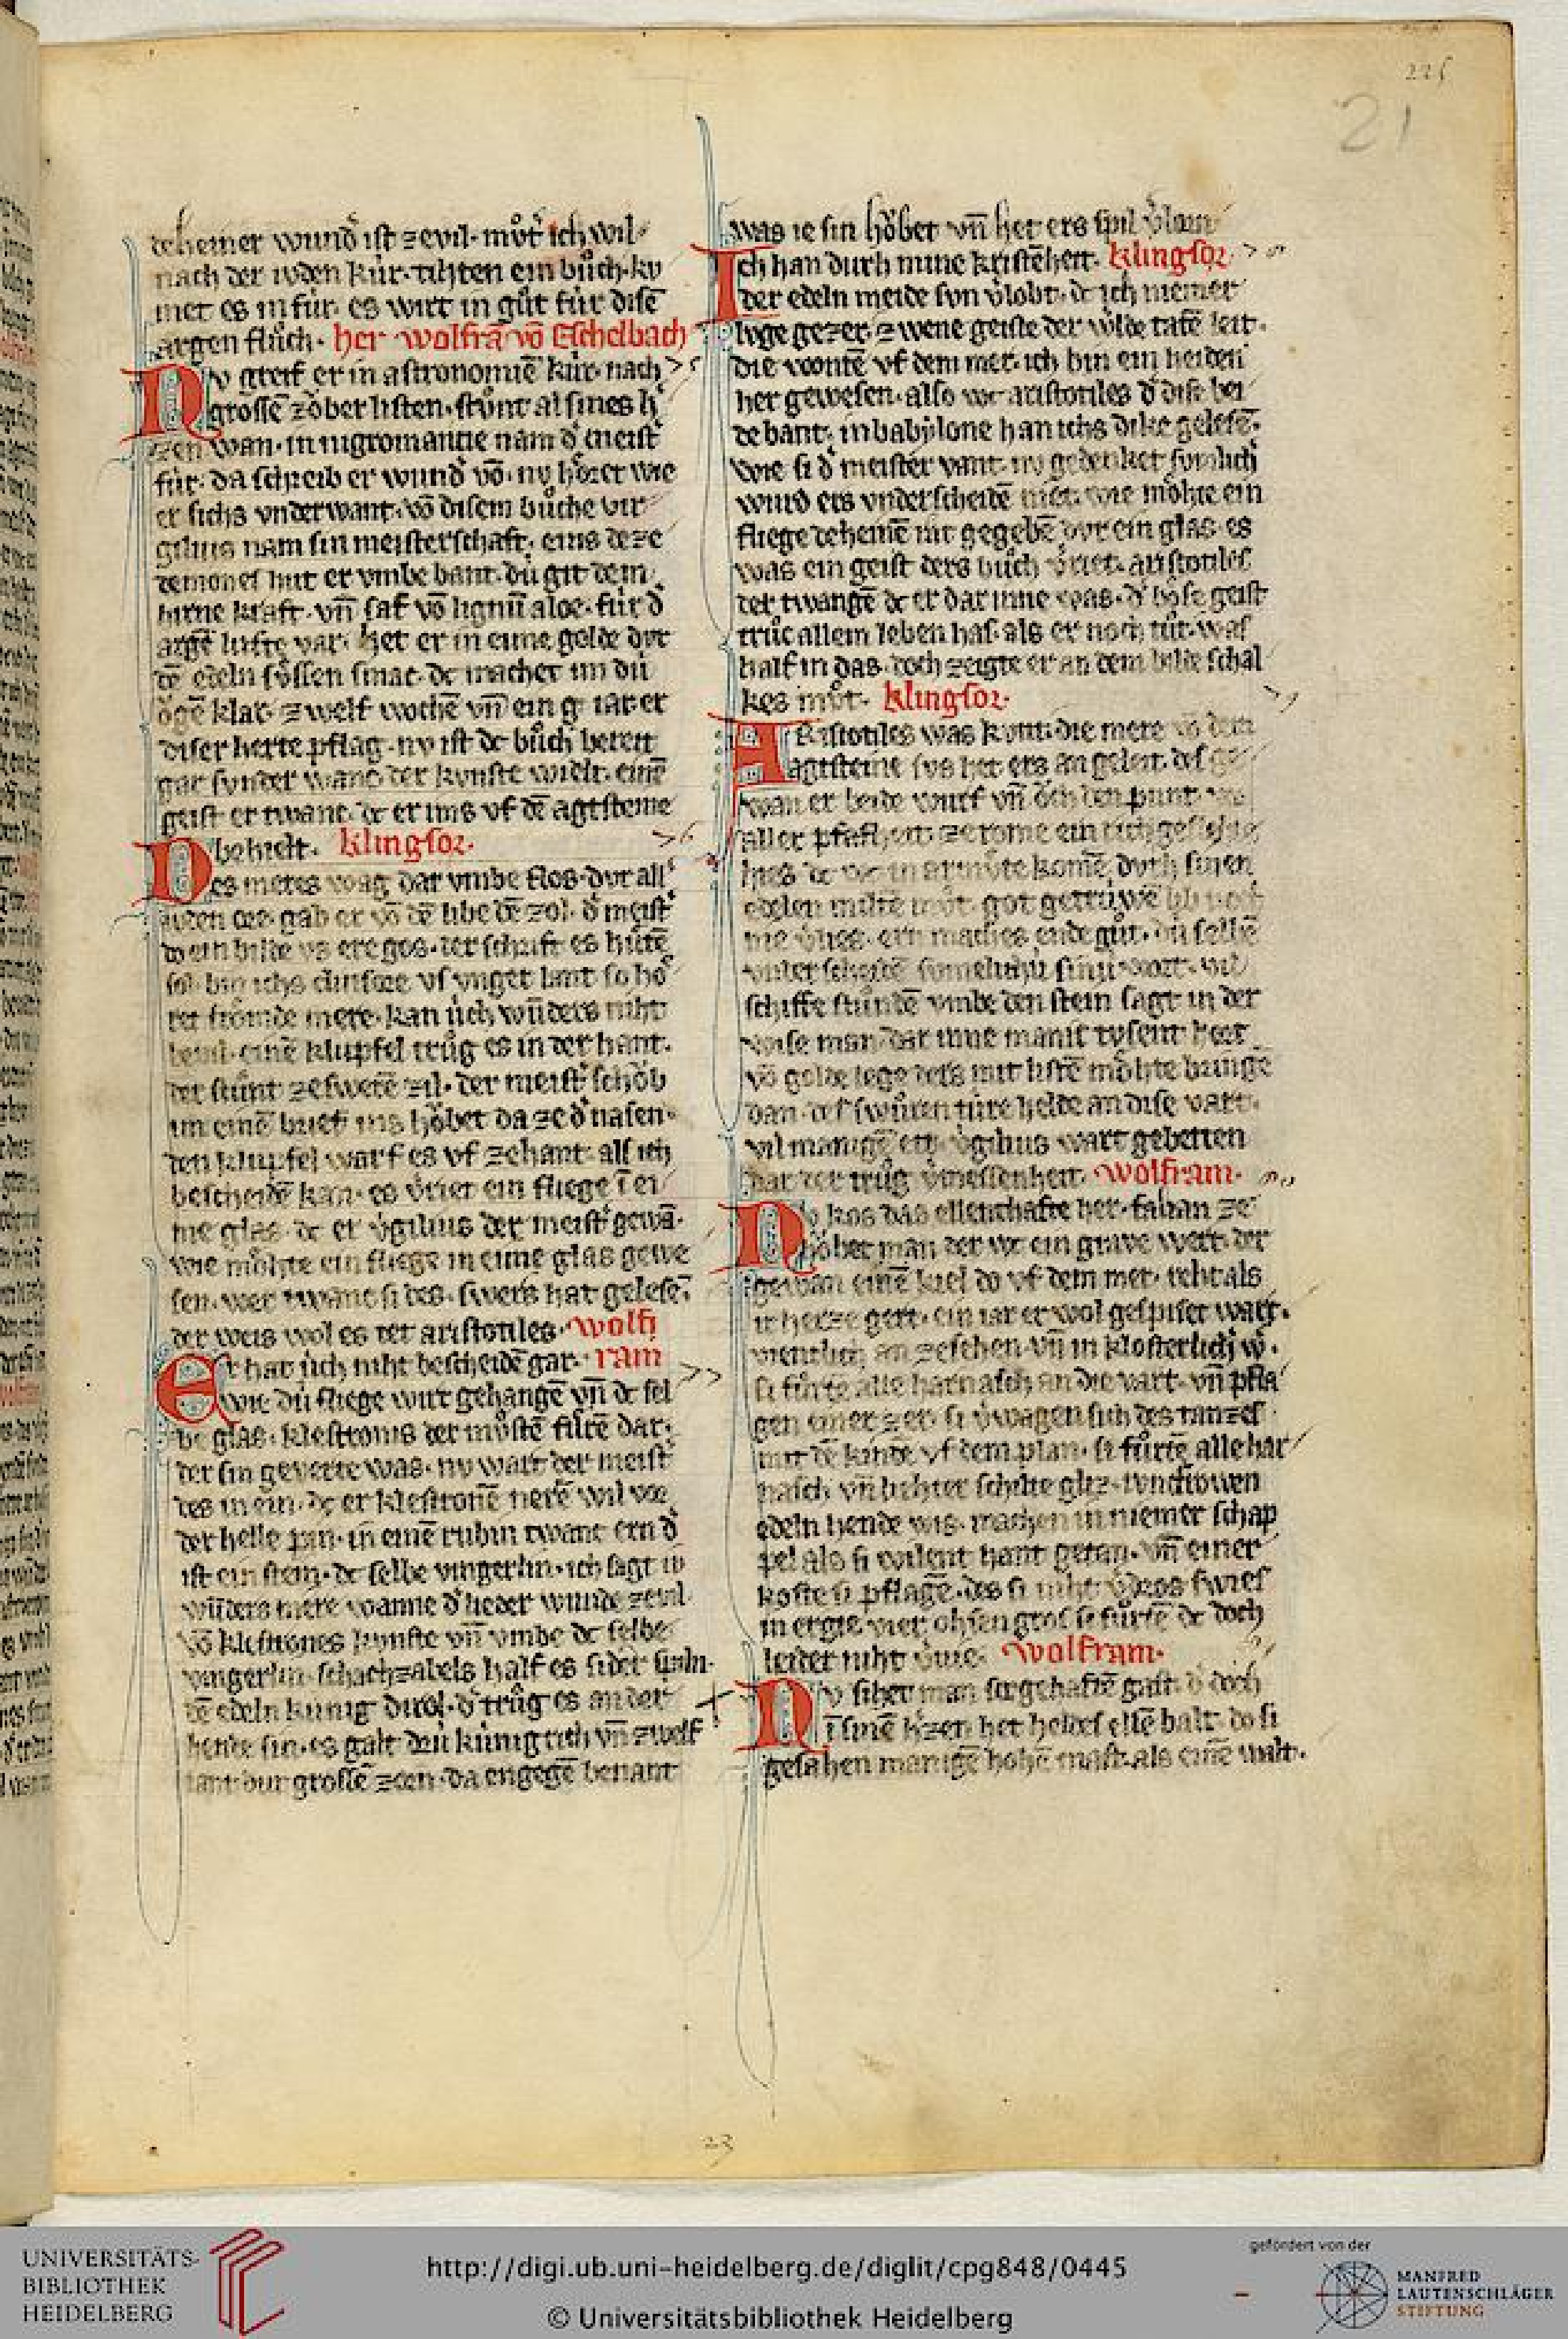 225
21
dehemer wund᷑ ist zevil· mv̊t᷑ ich wil
nach der ivden kúr· tihten ein bůch· kv
met es in fúr· es wirt in gůt fúr disē
argen flůch· her wolfrā vō Eschelbach
Nv greif er in astronomiē kúr· nach
grossē zǒber listen· stůnt al sines h᷑
zen wan· in nigromantie nam d᷑ meist᷑
fúr· da schreib er wund᷑ vō· nv hȯret wie
er sichs vnderwant· vō disem bůche vir
gilius nam sin meisterschaft· eins
demones mit er vmbe bant· dú git dem
hirne kraft· vn̄ saf vō lignū aloe· fúr d᷑
argē lufte var· het er in eime golde dvr
dē edeln sv̊ssen smac· dc machet im dú
ȯgē klar· zwelf wochē vn̄ ein g iar er
diser herte pflag· nv ist dc bůch bereit
gar svnder wanc· der kvnste wielt· einē
geist er twanc· dc er ims vf dē agtsteine
behielt· klingsor·
Des meres wag dar vmbe flos· dvr all᷑
gab er vō dē libe dē zol· d᷑ meist᷑
do ein bilde vs ere gos· der schrift es hůtē
sol· bin ichs clinsore vs vnger lant so hȯ
ret frȯmde mere· kan úch wūders niht
einē klupfel trůg es in der hant·
der stůnt zeswerē zil· der meist᷑ schǒb
im einē brief ins hǒbet da ze d᷑ nasen·
den klupfel warf es vf zehant· als ich
bescheidē kan· es v᷑riet ein fliege ī ei
me glas· dc er v᷑gilius der meist᷑ gewā·
wie mȯhte ein fliege in eime glas gewe
sen· wer twanc si des· swers hat gelesē·
der weis wol es tet aristotiles· wolf
Er hat úch niht bescheidē gar· ram
wie dú fliege wirt gehangē vn̄ dc sel
be glas· klestronis der mv̊stē fůrē dar·
der sin geverte was· nv wart der meist᷑
des in ein· dc er klestronē nerē wil vor
der helle pin· in einē rubin twanc ern d᷑
ist ein stein· dc selbe vingerlin· ich sagt iv
wūders mere wanne d᷑ lieder wurde zevil
vō klestrones kvnste vn̄ vmbe dc selbe
vingerlin· schachzabels half es sider spiln·
dē edeln kúnig dirol· d᷑ trůg es an der
hende sin· es galt drú kúnigrich vn̄ zwelf
lant· dur grossē zorn· da engegē benant
was ie sin hǒbet vn̄ het ers spil v᷑lorn
Ich han durh mine kristēheit· klingsor·
der edeln meide svn v᷑lobt· dc ich niemer
lvge gezer· zwene geiste der wilde tatē leit·
die wontē vf dem mer· ich bin ein heiden
her gewesen· also wc aristotiles d᷑ dise bei
de bant· in babylone han ichs dike gelesē·
wie si d᷑ meister vant· nv gedenket svmlich
wird ers vnderscheidē niet· wie mȯhte ein
fliege deheinē rat gegebē dvr ein glas· es
was ein geist ders bůch v᷑riet· aristotiles
der twangē dc er dar inne was· d᷑ bȯse geist
trůc allem leben has· als er noch tůt· was
half in das· doch zeigte er an dem bilde schal
kes mv̊t· klingsor·
Aristotiles was kvnt· die mere vō dem
agtsteine svs het ers an geleit· des ge
wan er beide wurf vn̄ ǒch den punt·
aller pfafheit· ze rome ein rich geslehte
hies dc wc in armůte komē· dvrh siren
edelen miltē mv̊t· got getrúwē lib noch
nie v᷑lies· ern maches ende gůt· dú selbē
vnter scheidē
schiffe stůndē vmbe den stein sagt in der
wise man· dar inne manic tvsent hort
vō golde lege ders mit listē mȯhte bringē
dan· des swůren túre helde an dise vart·
vil manigē eit· v᷑gilius wart gebetten
dar der trůg v᷑messenheit· wolfram·
Nv kos das ellenthafte her· fabian ze
hǒbet man der wc ein grave wert· der
gewan einē kiel do vf dem mer· reht als
ir herze gert· ein iar er wol gespiset wart·
vientlich an zesehen· vn̄ in klosterlich w᷑·
si fůrte alle harnasch an die vart· vn̄ pfla
gen einer zer· si v᷑wagen sich des tanzes
mit dē kinde vf dem plan· si fůrtē alle har
nasch vn̄ liehter schilte gliz· ivncfrowen
edeln hende wis· machen in niemer schap
pel als si wilent hant getan· vn̄ einer
koste si pflagē· des si niht v᷑dros swies
in ergie vier ohsen gros si fůrtē dc doch
leider niht v᷑vie· wolfram·
Nv sihet man sorgehaftē gast· d᷑ doch
ī sinē h᷑zen het heldes ellē balt· do si
gesahen manigē hohē mast· als einē walt·
23
UNIVERSITÄTS-
BIBLIOTHEK
HEIDELBERG
http://digi.ub.uni-heidelberg.de/diglit/cpg848/0445
© Universitätsbibliothek Heidelberg
gefördert von der
MANFRED
LAUTENSCHLÄGER
STIFTUNG